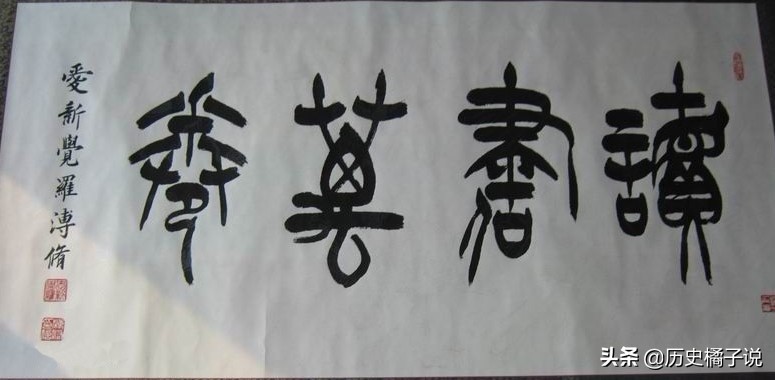 讀書萬卷
愛新覺羅溥脩
头条 @历史橘子说